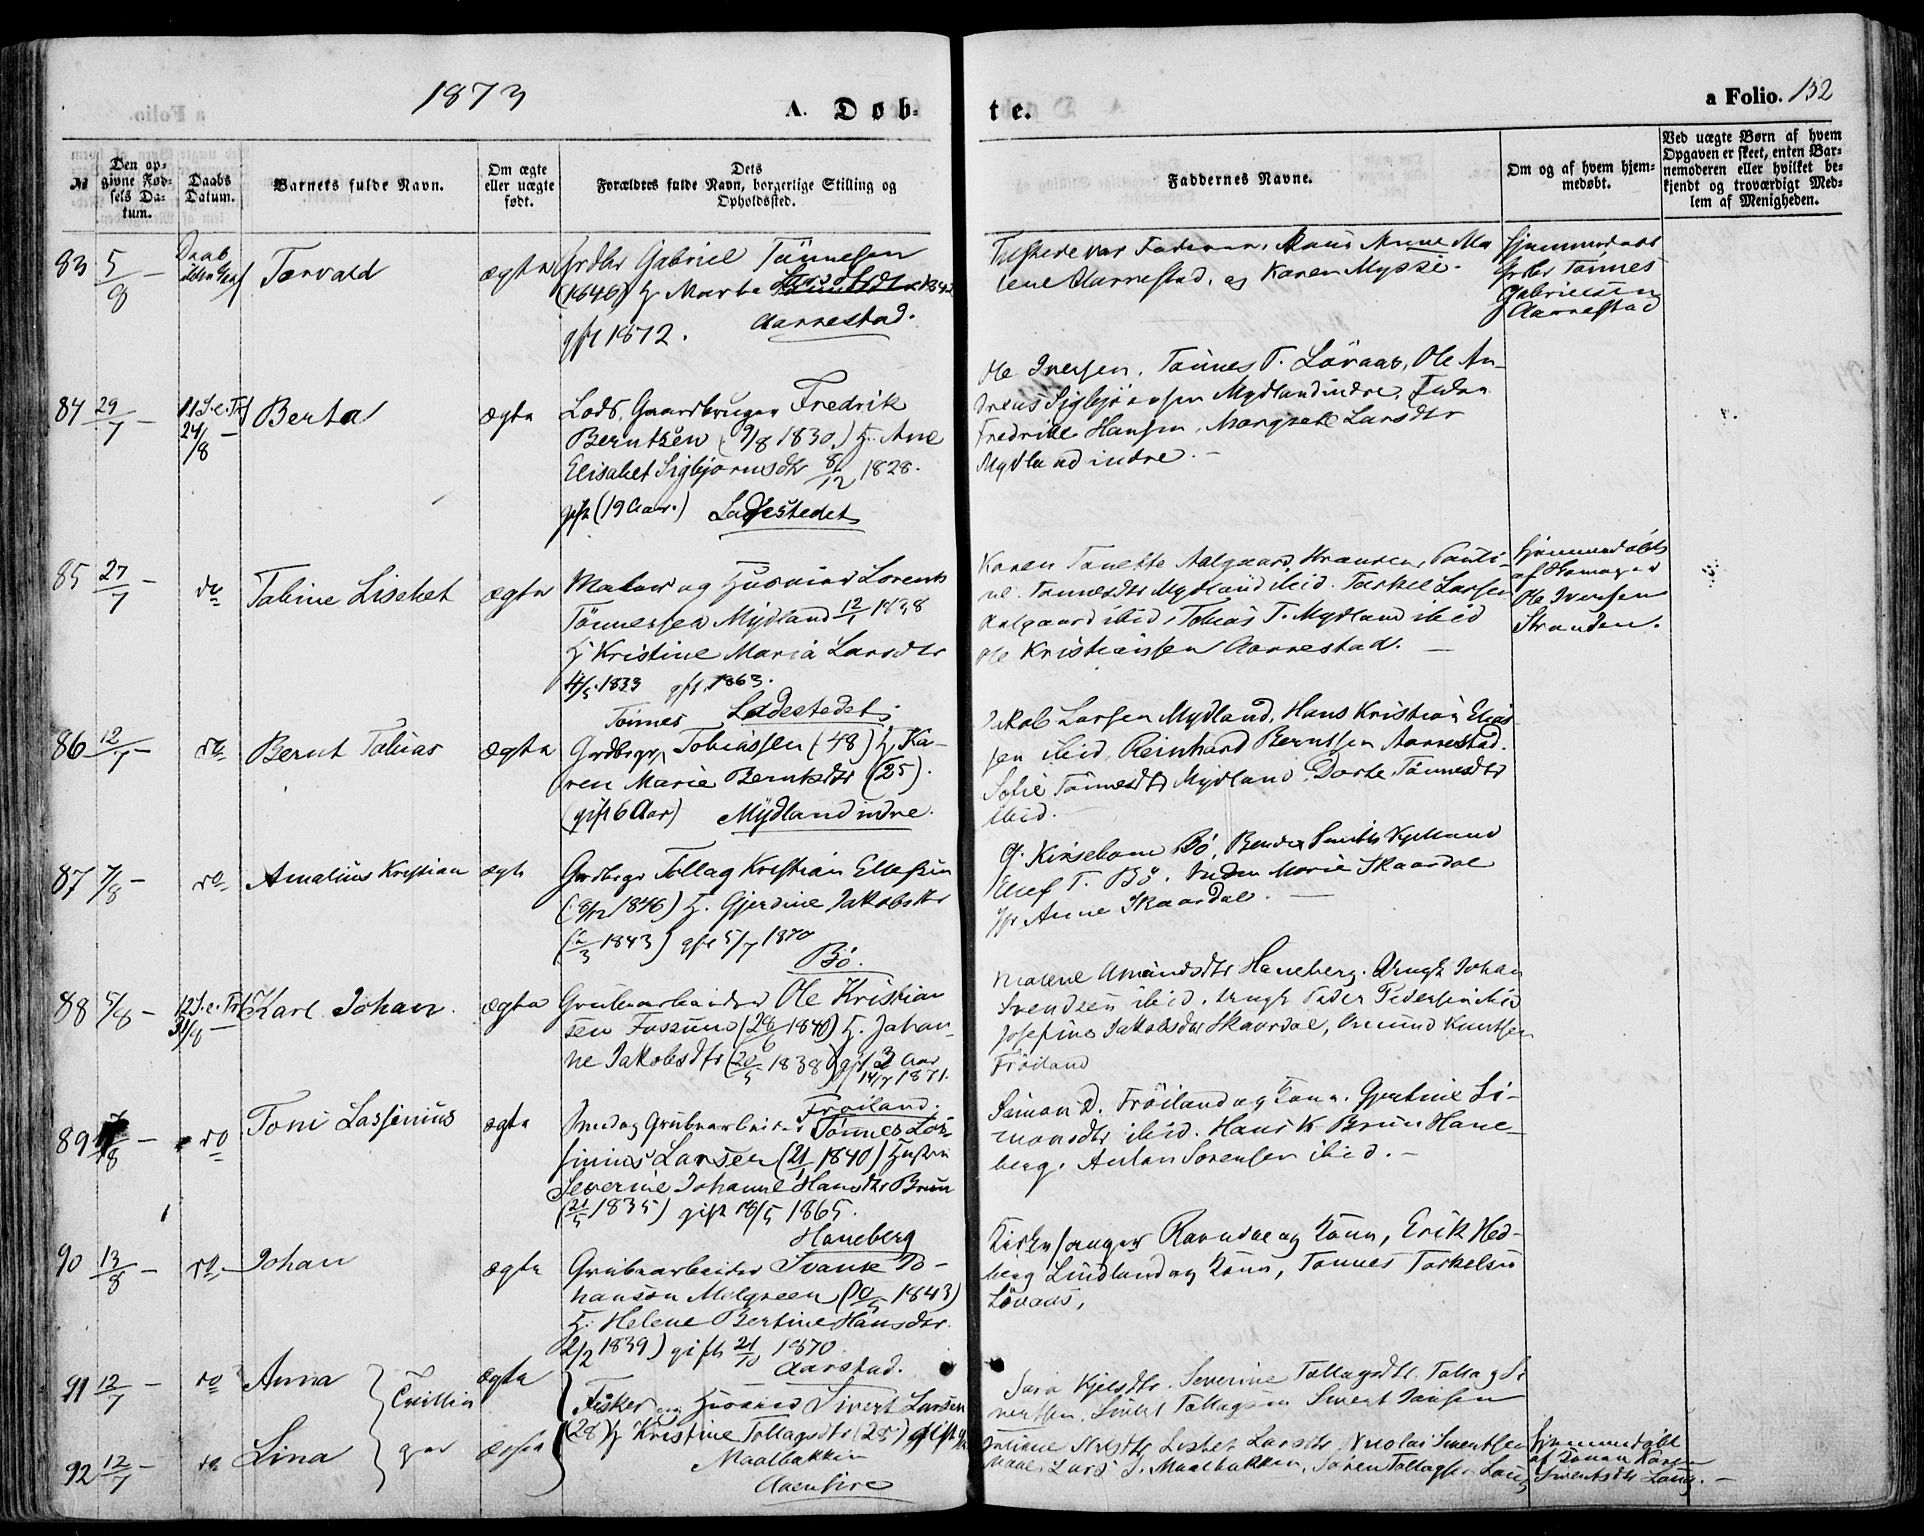 1873
A. Døb-
te.
a Folio. 152
№
Den op-
givne Fød-
sels Da-
tum.
Daabs
Datum.
Barnets fulde Navn.
Om ægte
eller uægte
født.
Dets
Forældres fulde Navn, borgerlige Stilling og
Opholdssted.
Faddernes Navne.
Om og af hvem hjem-
medøbt.
Ved uægte Børn af hvem
Opgaven er skeet, enten Bar-
nemoderen eller hvilket be-
kjendt og troværdigt Med-
lem af Menigheden.
83 5/8 — Daab Torvald ægte Grdbr Gabriel Tönnesen
(1846) H. Marta
Aarrestad.
gft 1872.
lene Aarrestad, og Karen Mysse.
Tönnes
Gabrielsen
Aarrestad
84 29/7 — 11 S. e. Tr 24/8 — Berta ægte Lods, Gaardbruger Fredrik
Berntsen (9/8 1830) H. Ane
Elisabet Sigbjørnsdtr 8/12 1828.
gift (19 Aar.) Ladestedet
Ole Iversen, Tönnes T. Lövaas, Ole An-
dreas Sigbjörnsen Mydland indre,
Fredrikke Hansen, Margrete Larsdtr
Mydland indre. —
85 27/7 — do Tobine Lisebet ægte Maler og Husmand Lorents
Tönnesen Mydland 12/1 1838
H Kristine Maria Larsdtr
4/5 1833 gft. 1863.
Ladestedet.
Karen Tonette Aalgaard, Stranden,
Tönnesdtr Mydland ibid. Torkel Larsen
Aalgaard ibid, Tobias T. Mydland ibid
Ole Kristiansen Aarrestad. —
Hjemmedöbt
Ole Iversen
Stranden.
86 12/7 — do Bernt Tobias ægte Grdbrgr Tönnes Tobiassen (48) H. Ka-
ren Marie Berntsdtr (25).
(gift 6 Aar) Mydland indre.
Jakob Larsen Mydland, Hans Kristian Elias
sen ibid, Reinhard Berntsen Aarrestad.
Sofie Tönnesdtr Mydland, Dorte Tönnesdtr
ibid.
87 7/8 — do Amalius Kristian ægte Grdbrgr Tollag Kristian Ellefsen
(8/12 1846) H. Gjerdine Jakobsdtr
1843) gft 5/7 1870
Bö.
G. Kirsebom Bö,
Ellef T. Bö. Marie Skaardal
Anne Skaardal. —
88 5/8 — 12 S. e. Tr 31/8 — Karl Johan. ægte Grubearbeider Ole Kristian
sen Fossum (28/6 1840) H. Johan-
ne Jakobsdtr (20/5 1838) gift 3 Aar
14/7 1871.
Fröiland.
Malene Amundsdtr Haneberg. Ungk Johan
Svendsen ibid. Ungk Peder Pedersen ibid
Josefine Jakobsdtr Skaardal, Omund Knutsen
Fröiland
89 — do Toni Lassinius ægte Grubearbeider Tönnes
Larsen (21/1 1840) Hustru
Severine Johanne Hansdtr Brun
(21/5 1835) gift 18/5 1865.
Haneberg
Simon D. Fröiland og Kone. Gjertine Si-
monsdtr ibid. Hans K Brun Hane-
berg. Anton Sörensen ibid. —
90 13/8 — do — Johan ægte Grubearbeider Svante Jo-
hanson Melgreen (10/5 1843)
H. Helene Bertine Hansdtr.
2/2 1839) gift 21/10 1870.
Aarstad.
Kirkesanger Ravndal og Kone, Erik Hed-
berg Lindland og Kone, Tönnes Torkelsen
Lövaas,
91 12/7 — do Anna ægte
Tvillin
ger
92 12/7 — do Lina ægte
Fisker og Husmand Sivert Larsen
(28) H Kristine Tollagsdtr (28) gift
Maalbakken
Aaensire
Sara Kjelsdtr. Severine Tollagsdtr. Tollag Si
vertsen, Sivert Tollagsen Sivert Jansen
Juliane Nilsdtr Lisbet Larsdtr, Nicolai Sivertsen
Lars S. Maalbakken, Sören Tollagsen Laug
Hjemmedöbt
af Konen Karen
Sivertsdtr Laug. —